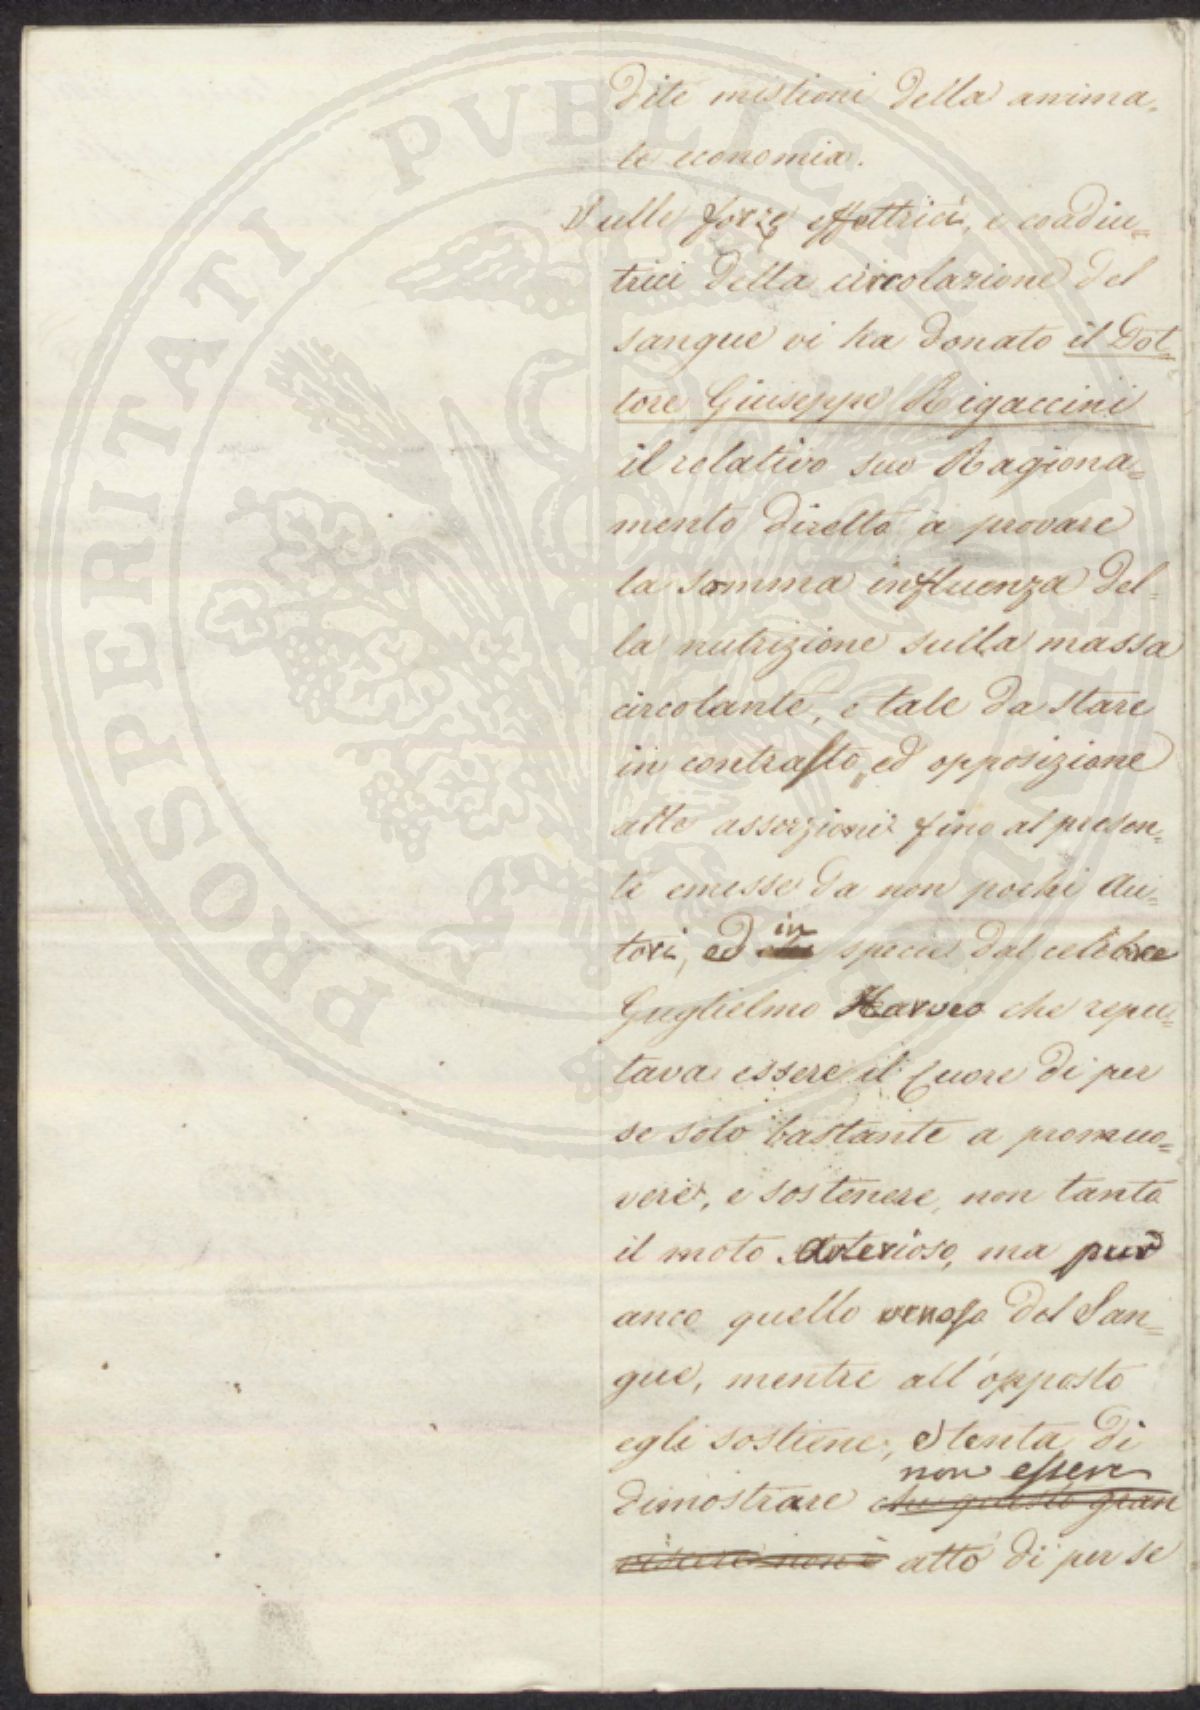 dite mistioni della anima=
le economia.
Sulle forze effettrici, e coadiu=
trici della circolazione del
sangue vi ha donato il Dot=
tore Giuseppe Rigaccini
il relativo suo Ragiona=
mento diretto a provare
la somma influenza del=
la nutrizione sulla massa
circolante, e tale da stare
in contrasto, ed opposizione
alle asserzioni fino al presen=
te emesse da non pochi Au=
tori, ed in specie dal celebre
Guglielmo Harveo che repu=
tava essere il Cuore di per
se solo bastante a promuo=
vere, e sostenere, non tanto
il moto Arterioso, ma pur
anco quello venoso del San=
gue, mentre all'opposto
egli sostiene, e tenta di
non essere
dimostrare che questo gran
viscere non è atto di per se
PROSPERITATI PUBLICAE